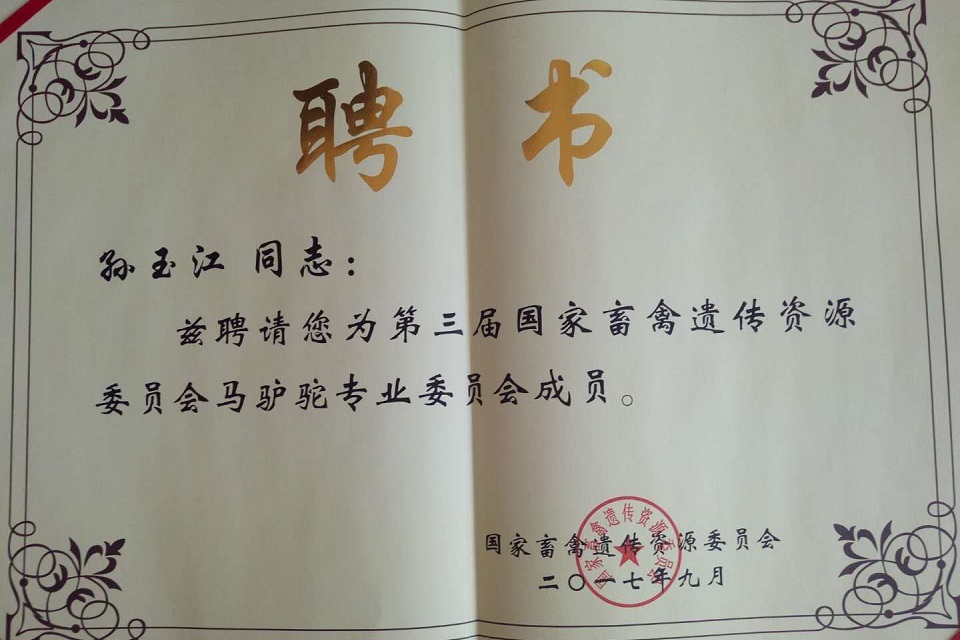 聘书
孙玉江 同志：
兹聘请您为第三届国家畜禽遗传资源
委员会马驴驼专业委员会成员。
国家畜禽遗传资源委员会
二〇一七年九月
国家畜禽遗传资源委员会